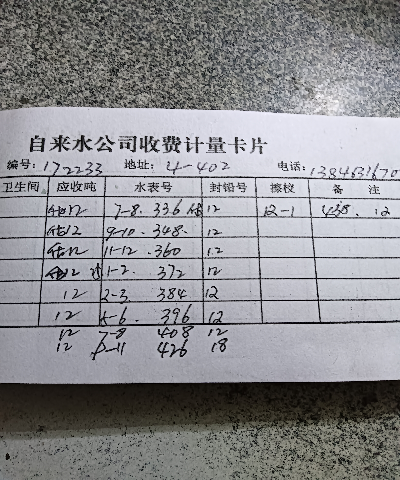 自来水公司收费计量卡片
编号: 172233 地址: 4-402 电话:
卫生间 应收吨 水表号 封铅号 擦校 备注
估12 7-8. 336 估 12 12-1 438. 12
估12 9-10. 348. 12
估12 11-12. 360 12
估12 1-2. 372 12
12 2-3. 384 12
12 5-6. 396 12
12 7-8 408 12
12 426 18